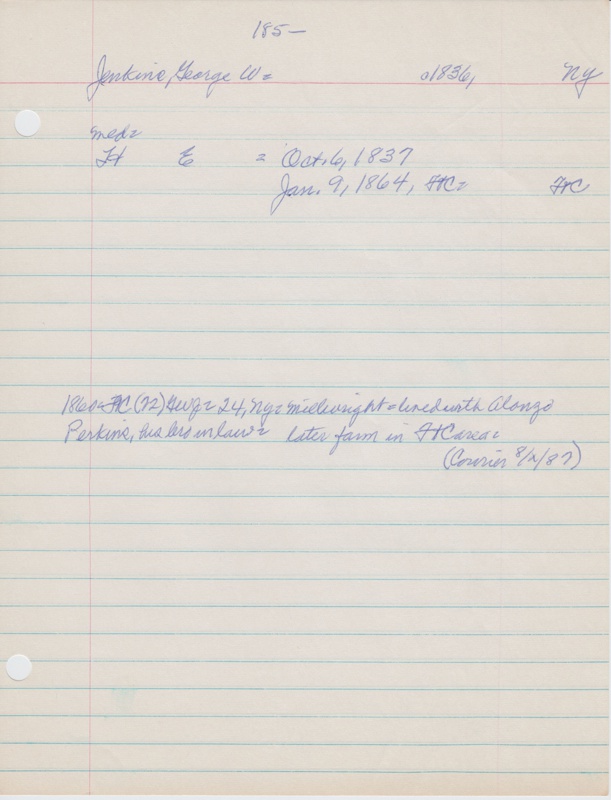 185—
Jenkins, George W = a1836, NY
med=
H E = Oct. 6, 1837
Jan. 9, 1864, FC= FC
1860= FC (72) = 24, NY= millwright = lived with Alonzo
Perkins, his bro in law = later farm in FC area=
(Courier 8/2/87)